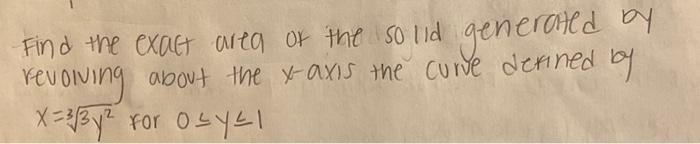 Find the exact area of the solid generated by
revolving about the x-axis the curve defined by
x=∛3y² for 0≤y≤1